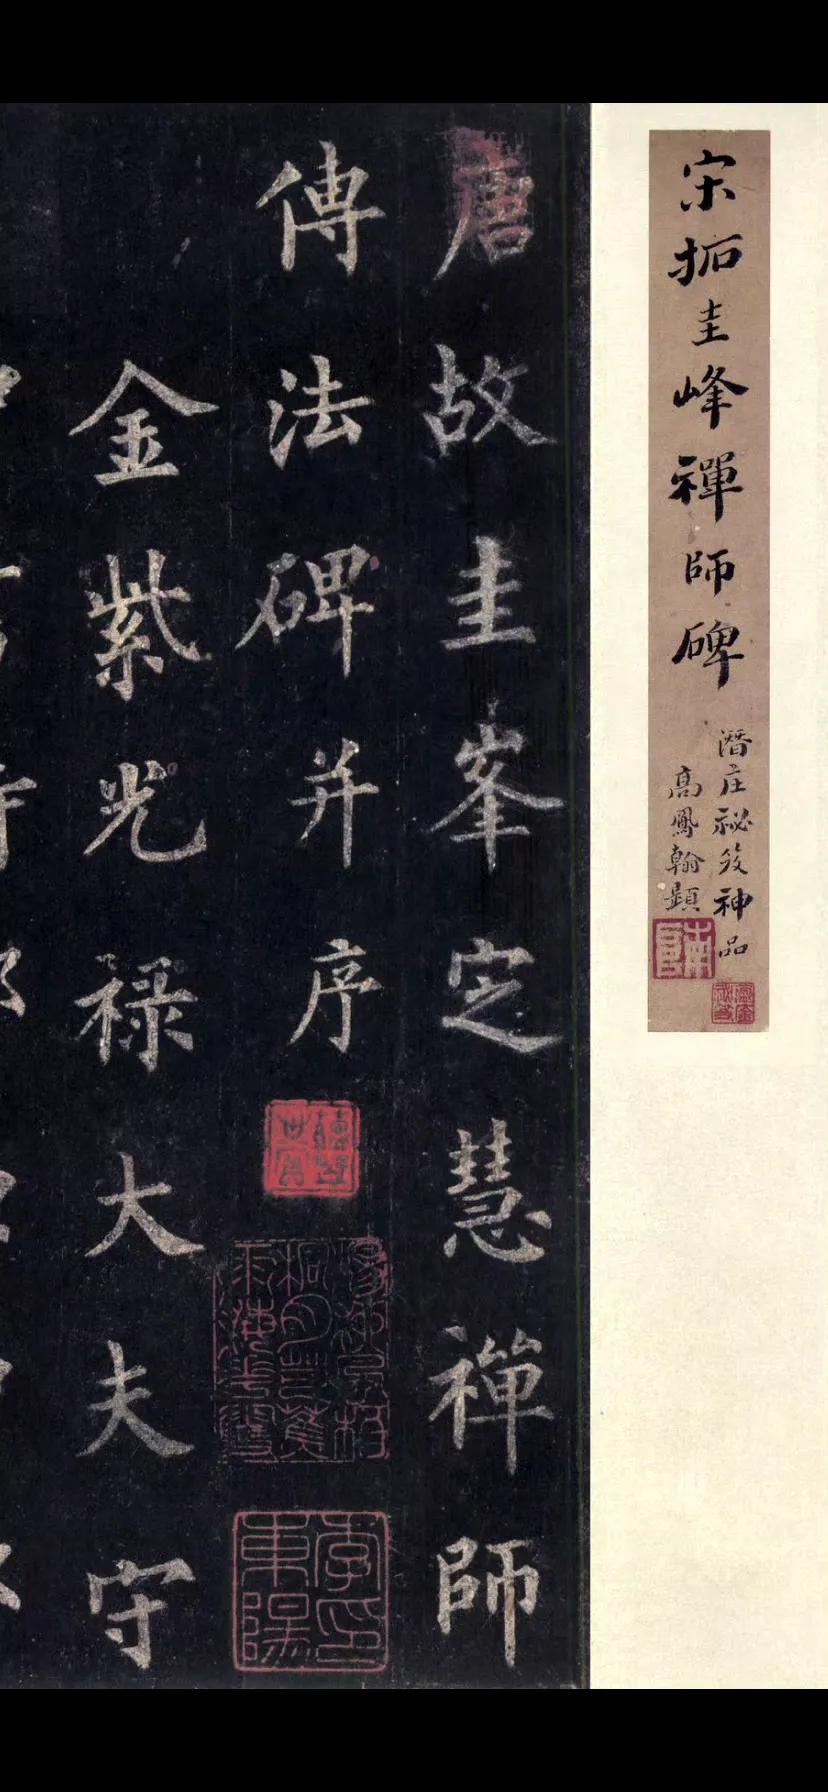 宋拓圭峰禪師碑
潛庄祕笈神品
高鳳翰題
唐故圭峯定慧禪師
傳法碑并序
李印東陽
金紫光禄大夫守